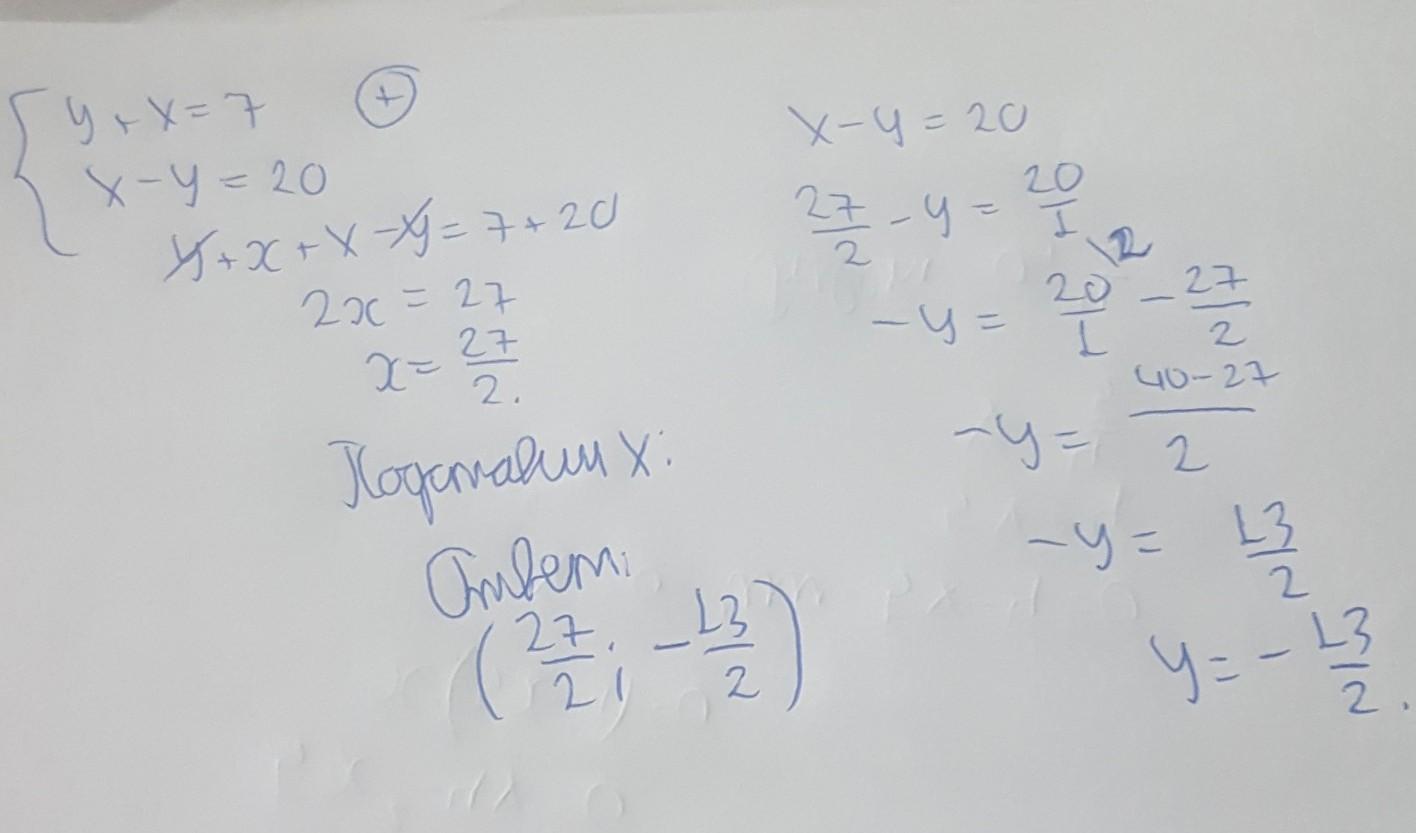 y + x = 7 (+)
x - y = 20
y + x + x - y = 7 + 20
2x = 27
x = 27/2.
Подставим x:
Ответ:
(27/2; -13/2)
x - y = 20
27/2 - y = 20/1
-y = 20/1 \2 - 27/2
-y = (40-27)/2
-y = 13/2
y = -13/2.